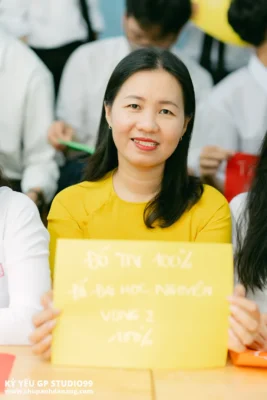 ĐỖ TN 100%
ĐỖ ĐẠI HỌC NGUYỆN
VỌNG 2
100%
KỶ YẾU GP STUDIO99